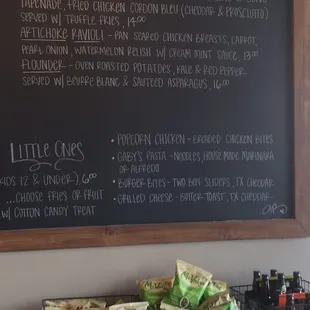 TAPENADE, FRIED CHICKEN CORDON BLEU (CHEDDAR & PROSCIUTTO)
SERVED W/ TRUFFLE FRIES, 14.00
ARTICHOKE RAVIOLI - PAN SEARED CHICKEN BREASTS, CARROT,
PEARL ONION, WATERMELON RELISH W/ CREAM MINT SAUCE, 13.00
FLOUNDER - OVEN ROASTED POTATOES, KALE & RED PEPPER
SERVED W/ BEURRE BLANC & SAUTEED ASPARAGUS, 16.00
LITTLE ONES
KIDS 12 & UNDER), 6.00
...CHOOSE FRIES OR FRUIT
W/ COTTON CANDY TREAT
• POPCORN CHICKEN - BREADED CHICKEN BITES
• GABY'S PASTA - NOODLES, HOUSE MADE MARINARA
OR ALFREDO
• BURGER BITES - TWO BEEF SLIDERS, TX CHEDDAR
• GRILLED CHEESE - BUTTER TOAST, TX CHEDDAR